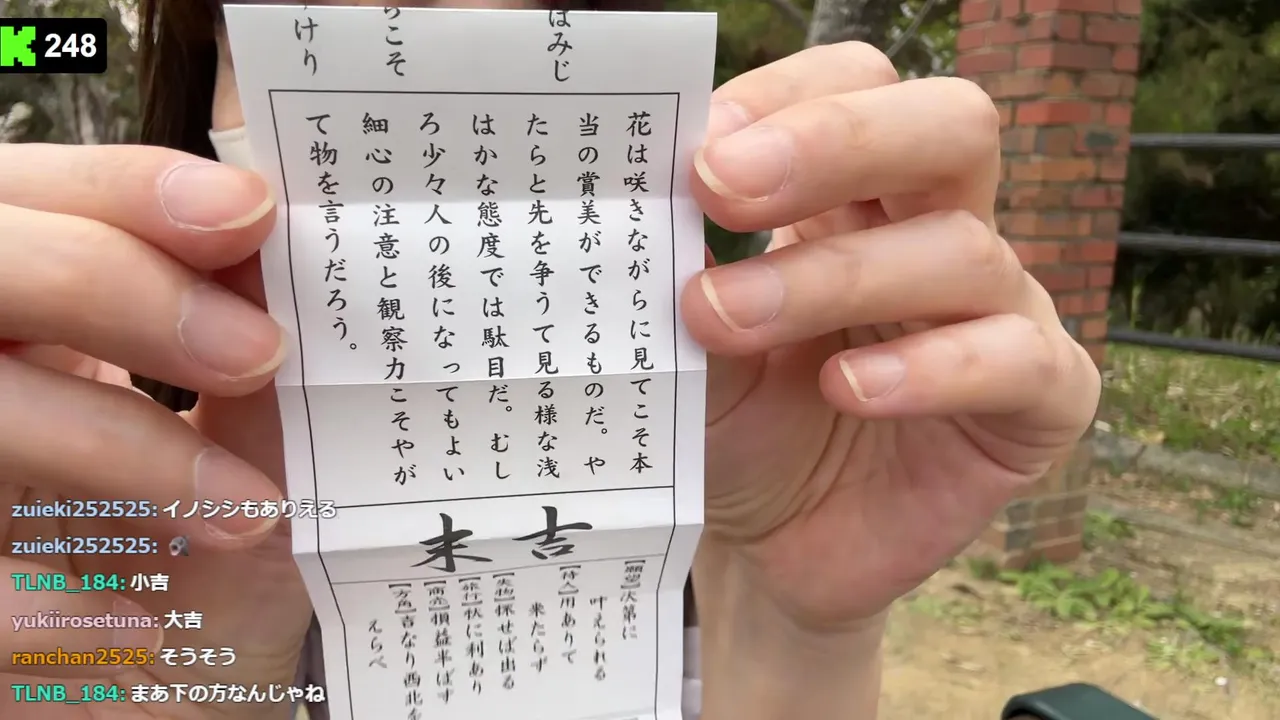 248
はみじ
らこそ
けり
花は咲きながらに見てこそ本
当の賞美ができるものだ。や
たらと先を争うて見る様な浅
はかな態度では駄目だ。むし
ろ少々人の後になってもよい
細心の注意と観察力こそやが
て物を言うだろう。
末吉
【願望】次第に
叶えられる
【待人】用ありて
来たらず
【失物】探せば出る
【旅行】秋に利あり
【商売】損益半ばす
【方角】吉なり西北を
えらべ
zuieki252525: イノシシもありえる
zuieki252525:
TLNB_184: 小吉
yukiirosetuna: 大吉
ranchan2525: そうそう
TLNB_184: まあ下の方なんじゃね